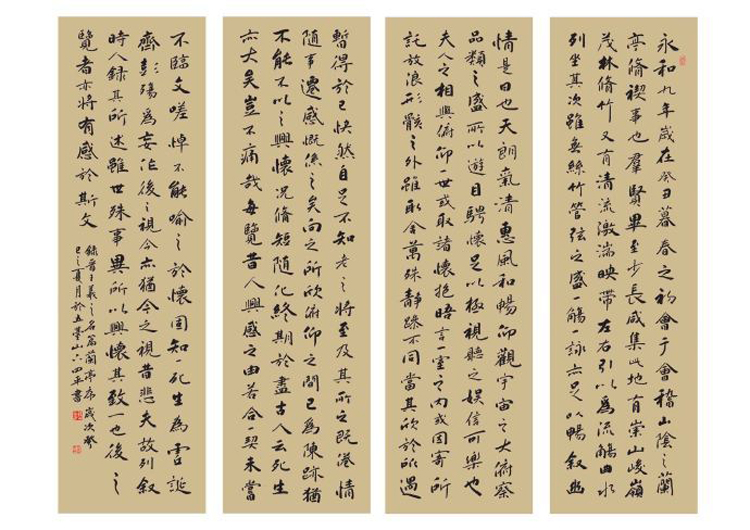 永和九年歲在癸丑暮春之初會于會稽山陰之蘭
亭脩禊事也羣賢畢至少長咸集此地有崇山峻嶺
茂林脩竹又有清流激湍映帶左右引以為流觴曲水
列坐其次雖無絲竹管弦之盛一觴一詠亦足以暢叙幽
情是日也天朗氣清惠風和暢仰觀宇宙之大俯察
品類之盛所以遊目騁懷足以極視聽之娛信可樂也
夫人之相與俯仰一世或取諸懷抱晤言一室之內或因寄所
託放浪形骸之外雖取舍萬殊靜躁不同當其欣於所遇
暫得於己快然自足不知老之將至及其所之既惓情
隨事遷感慨係之矣向之所欣俯仰之間已為陳跡猶
不能不以之興懷況脩短隨化終期於盡古人云死生
亦大矣豈不痛哉每覽昔人興感之由若合一契未嘗
不臨文嗟悼不能喻之於懷固知死生為虛誕
齊彭殤為妄作後之視今亦猶今之視昔悲夫故列叙
時人錄其所述雖世殊事異所以興懷其致一也後之
覽者亦將有感於斯文
錄晉王羲之名篇蘭亭序歲次癸
巳之夏月於五臺山六四平書